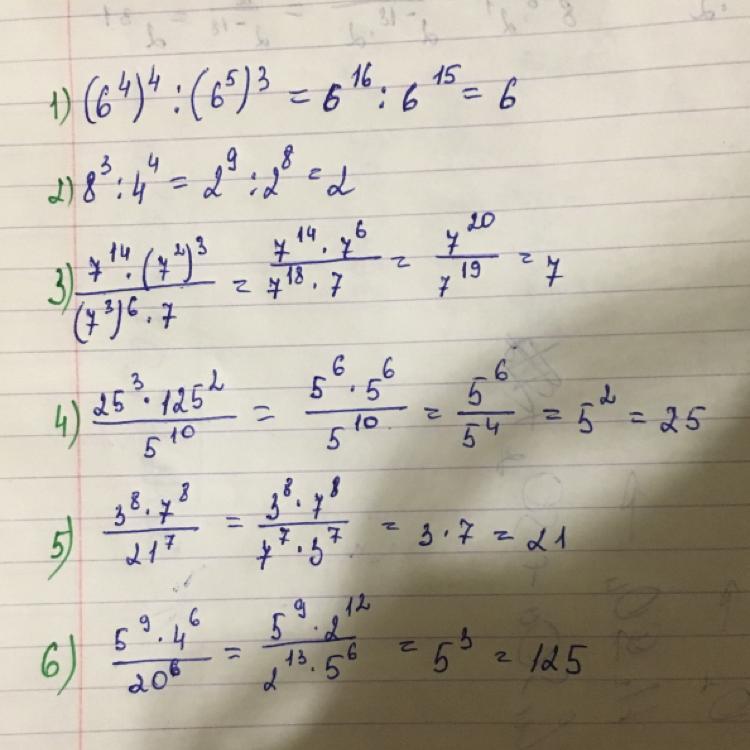 1) (6^4)^4 : (6^5)^3 = 6^16 : 6^15 = 6
2) 8^3 : 4^4 = 2^9 : 2^8 = 2
3) (7^14 · (7^2)^3) / ((7^3)^6 · 7) = (7^14 · 7^6) / (7^18 · 7) = 7^20 / 7^19 = 7
4) (25^3 · 125^2) / 5^10 = (5^6 · 5^6) / 5^10 = 5^6 / 5^4 = 5^2 = 25
5) (3^8 · 7^8) / 21^7 = (3^8 · 7^8) / (7^7 · 3^7) = 3 · 7 = 21
6) (5^9 · 4^6) / 20^6 = (5^9 · 2^12) / (2^13 · 5^6) = 5^3 = 125